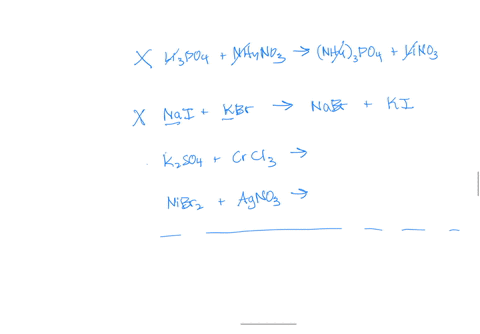 X Li₃PO₄ + NH₄NO₃ → (NH₄)₃PO₄ + LiNO₃
X NaI + KBr → NaBr + KI
K₂SO₄ + CrCl₃ →
NiBr₂ + AgNO₃ →